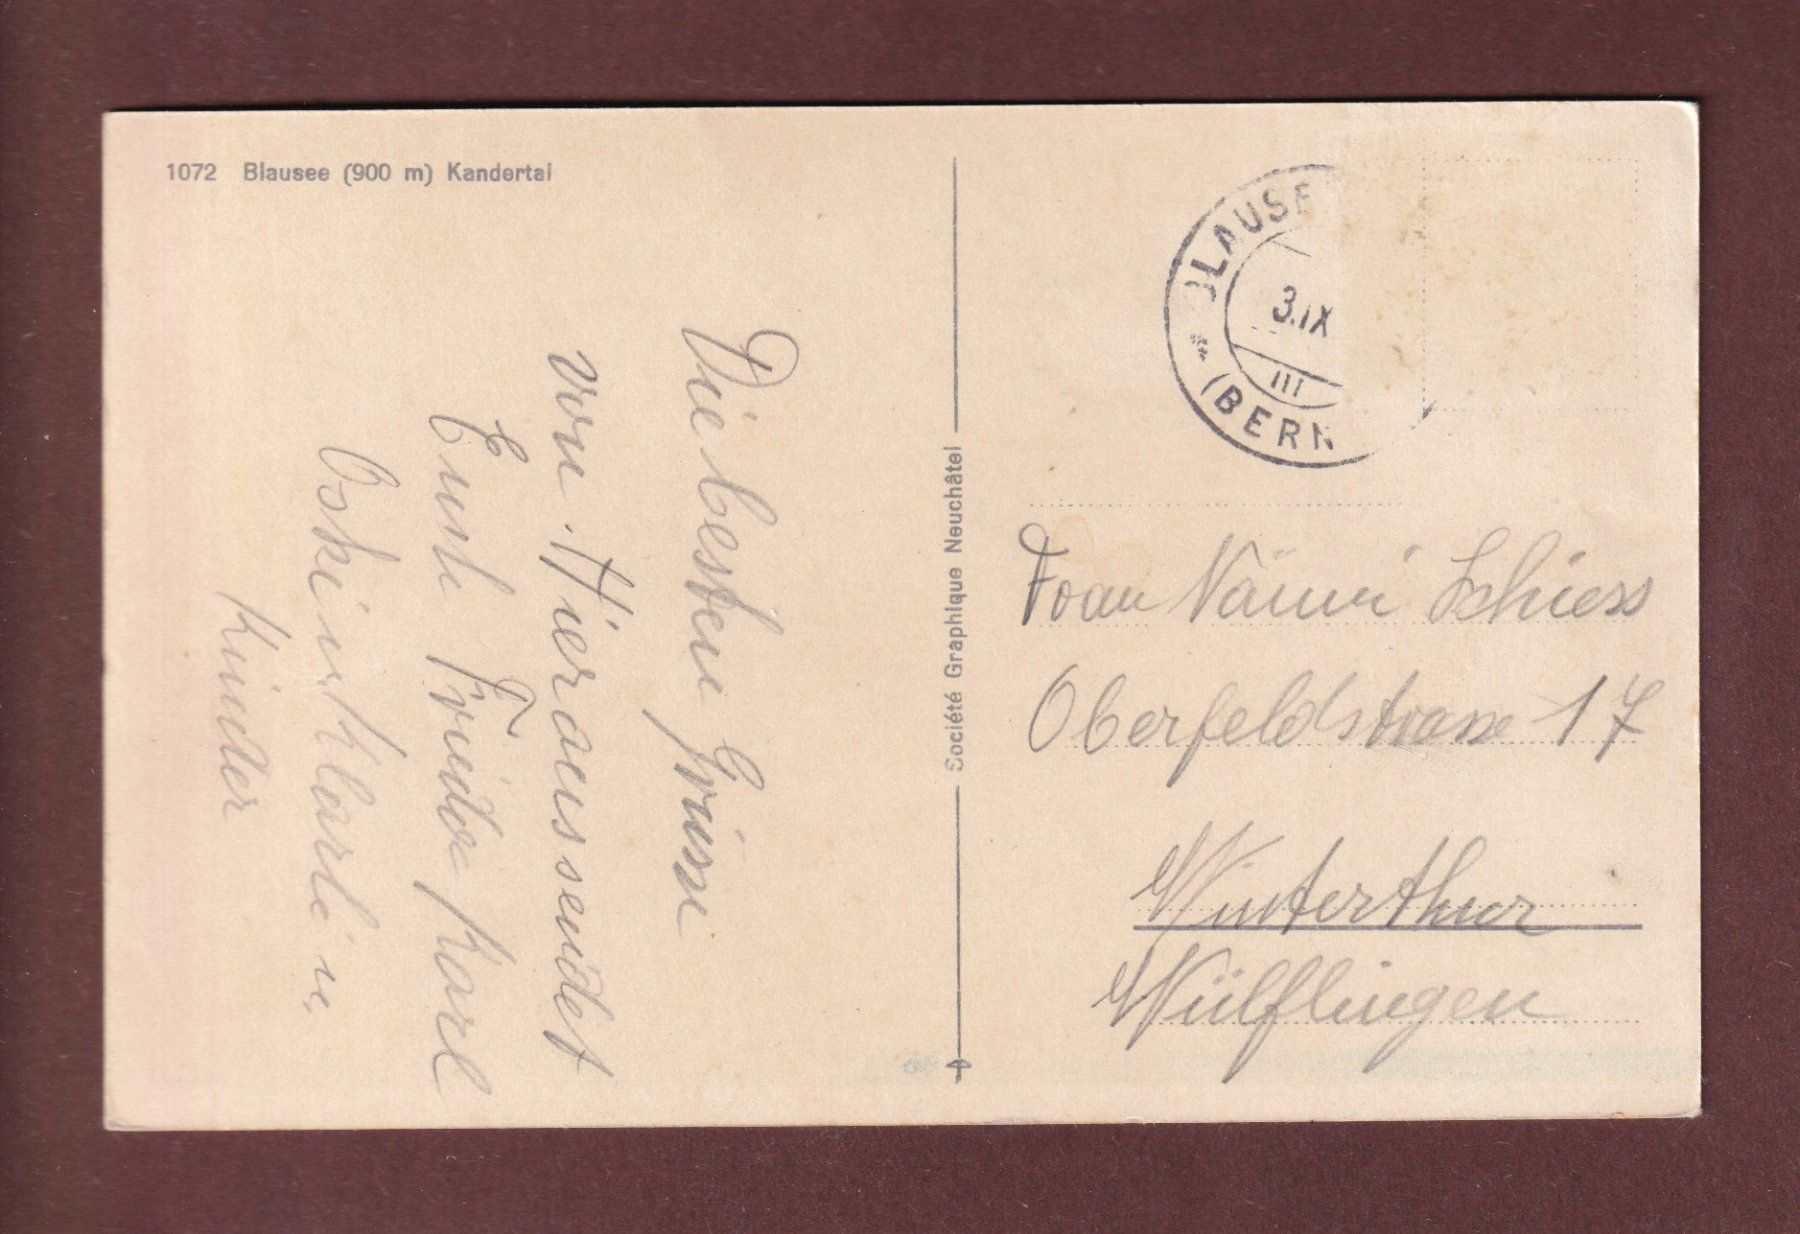 1072 Blausee (900 m) Kandertal
Die besten Grüsse
von Hier aus sendet
Euch Frieda Karl
Oski u Karli u,
Kinder
Société Graphique Neuchâtel
BLAUSE
3.IX
III
(BERN
Frau Nänni Schiess
Oberfeldstrasse 17
Winterthur
Wülflingen